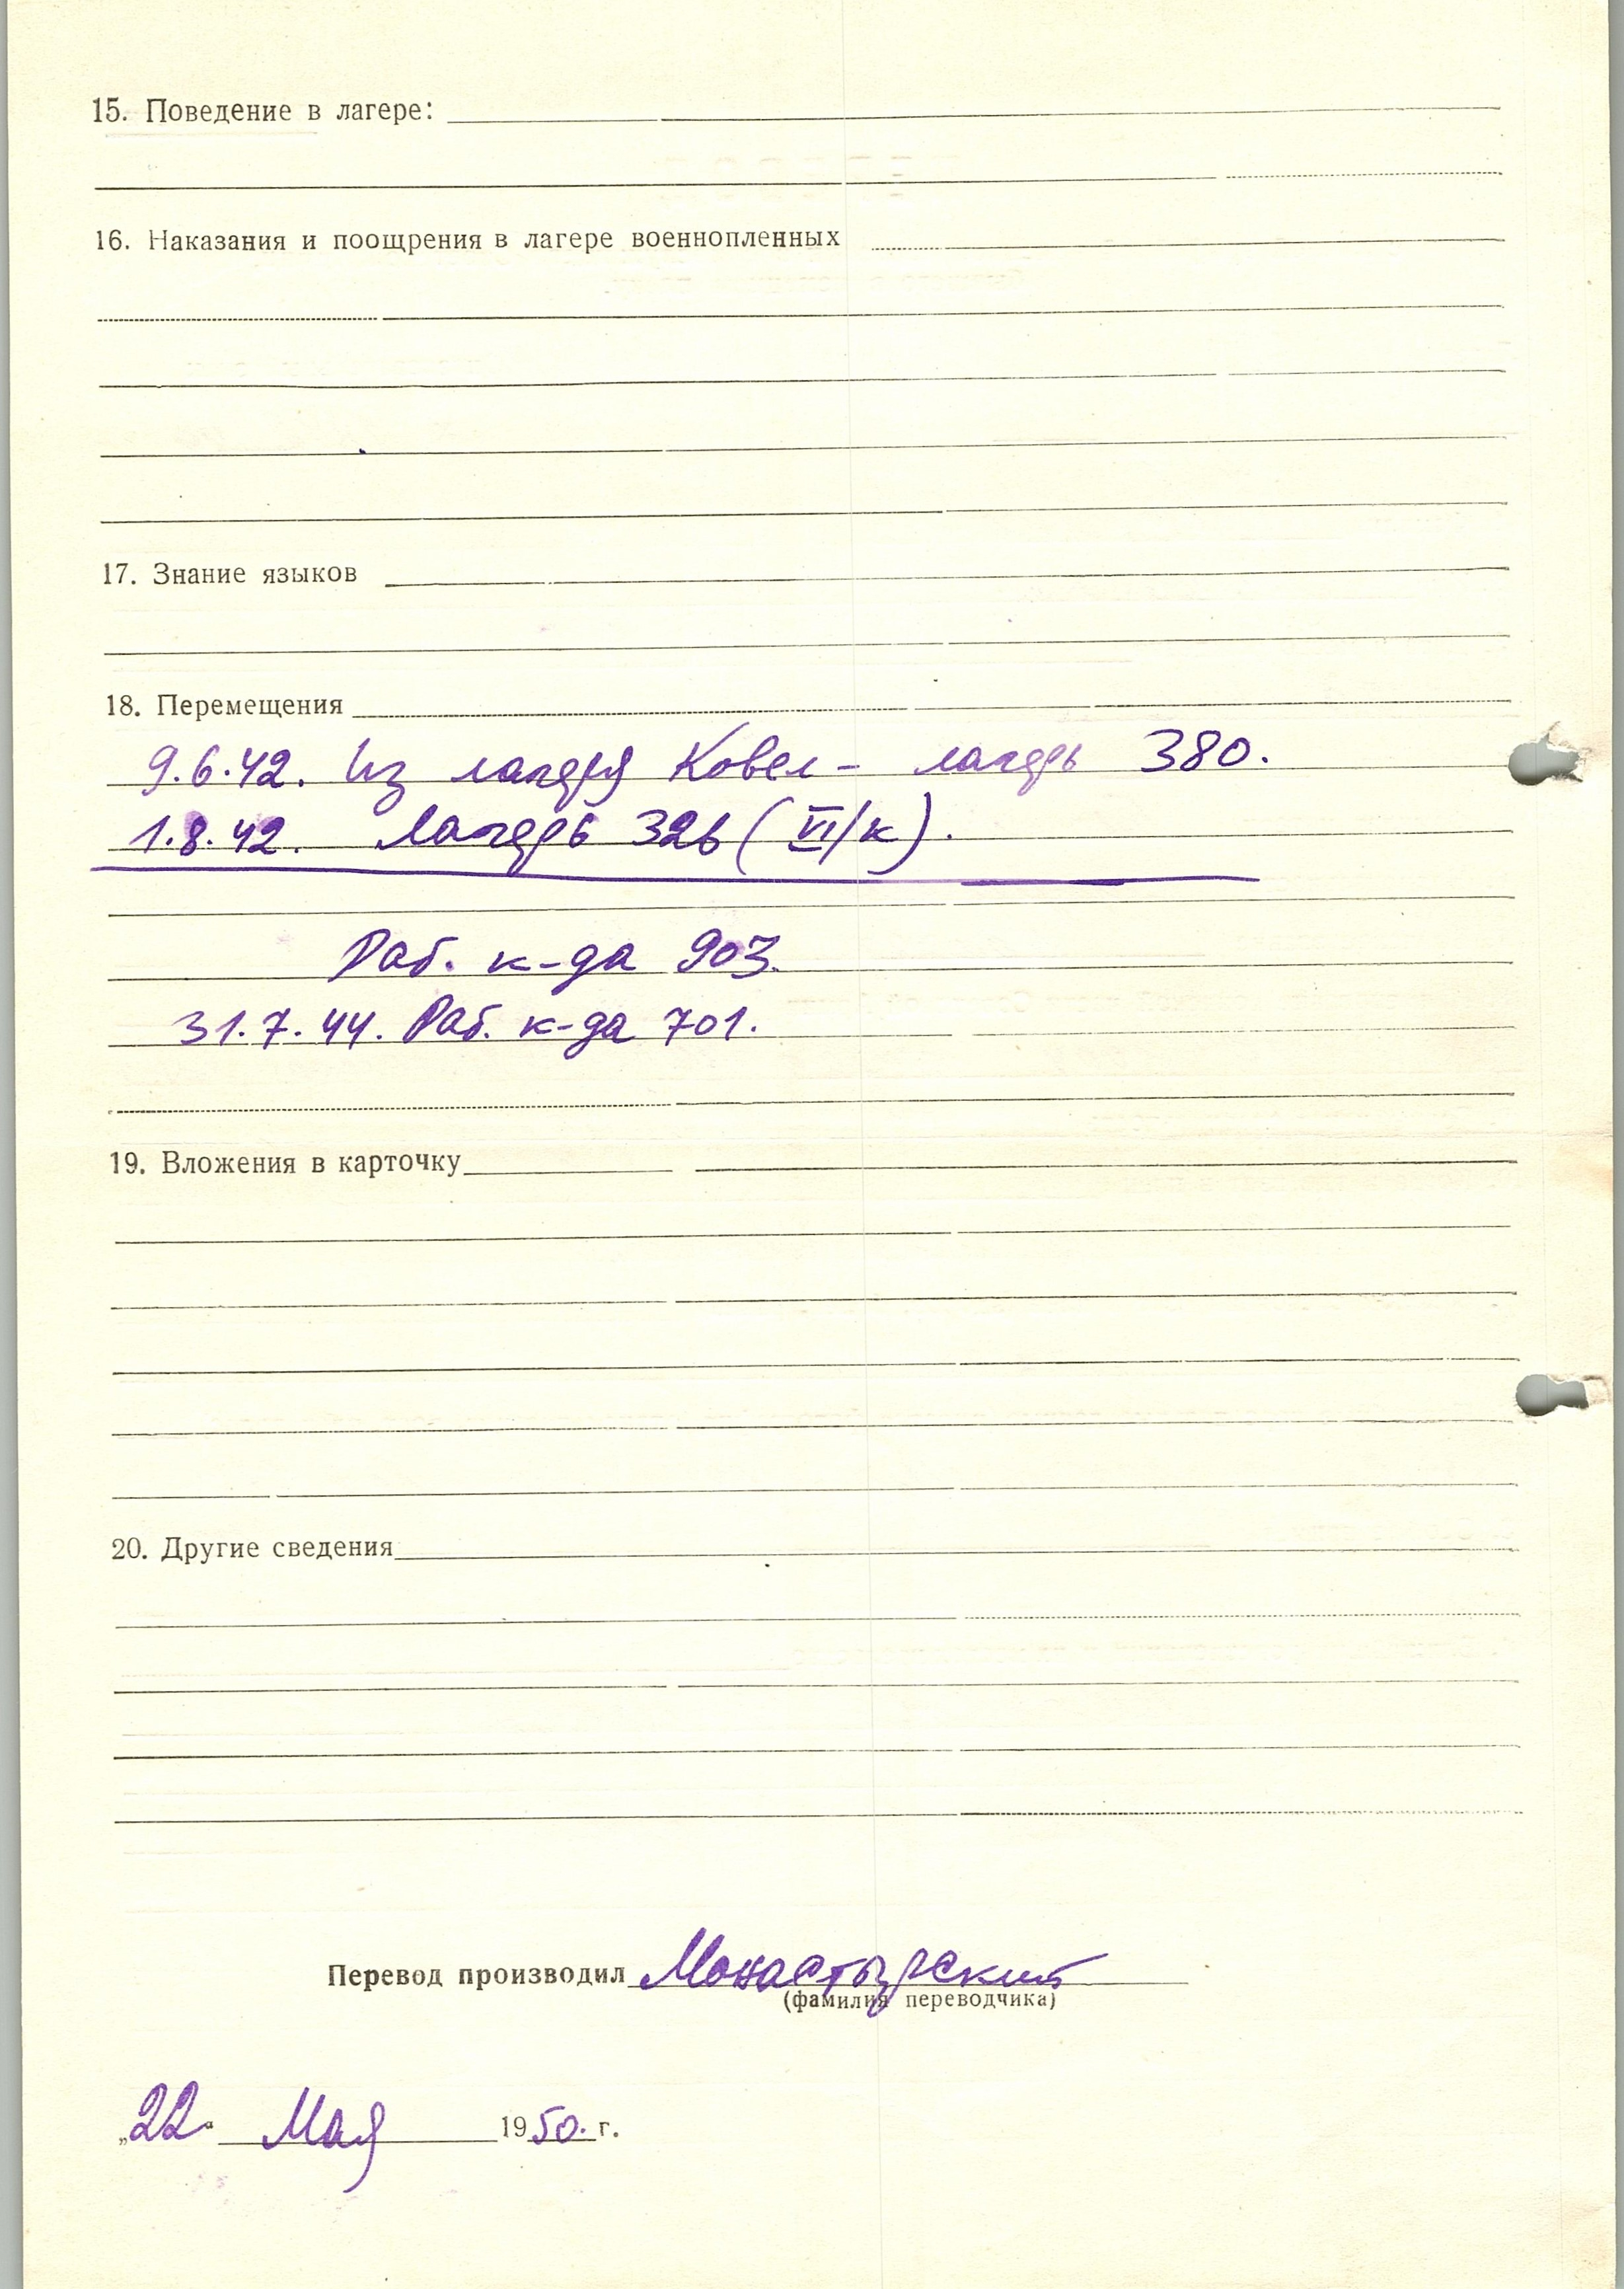 15. Поведение в лагере:
16. Наказания и поощрения в лагере военнопленных
17. Знание языков
18. Перемещения
9.6.42. Из лагеря Ковел - лагерь 380.
1.8.42. Лагерь 326 (VI/к).
Раб. к-да 903.
31.7.44. Раб. к-да 701.
19. Вложения в карточку
20. Другие сведения
Перевод производил Монастырский
(фамилия переводчика)
„22“ Мая 1950. г.